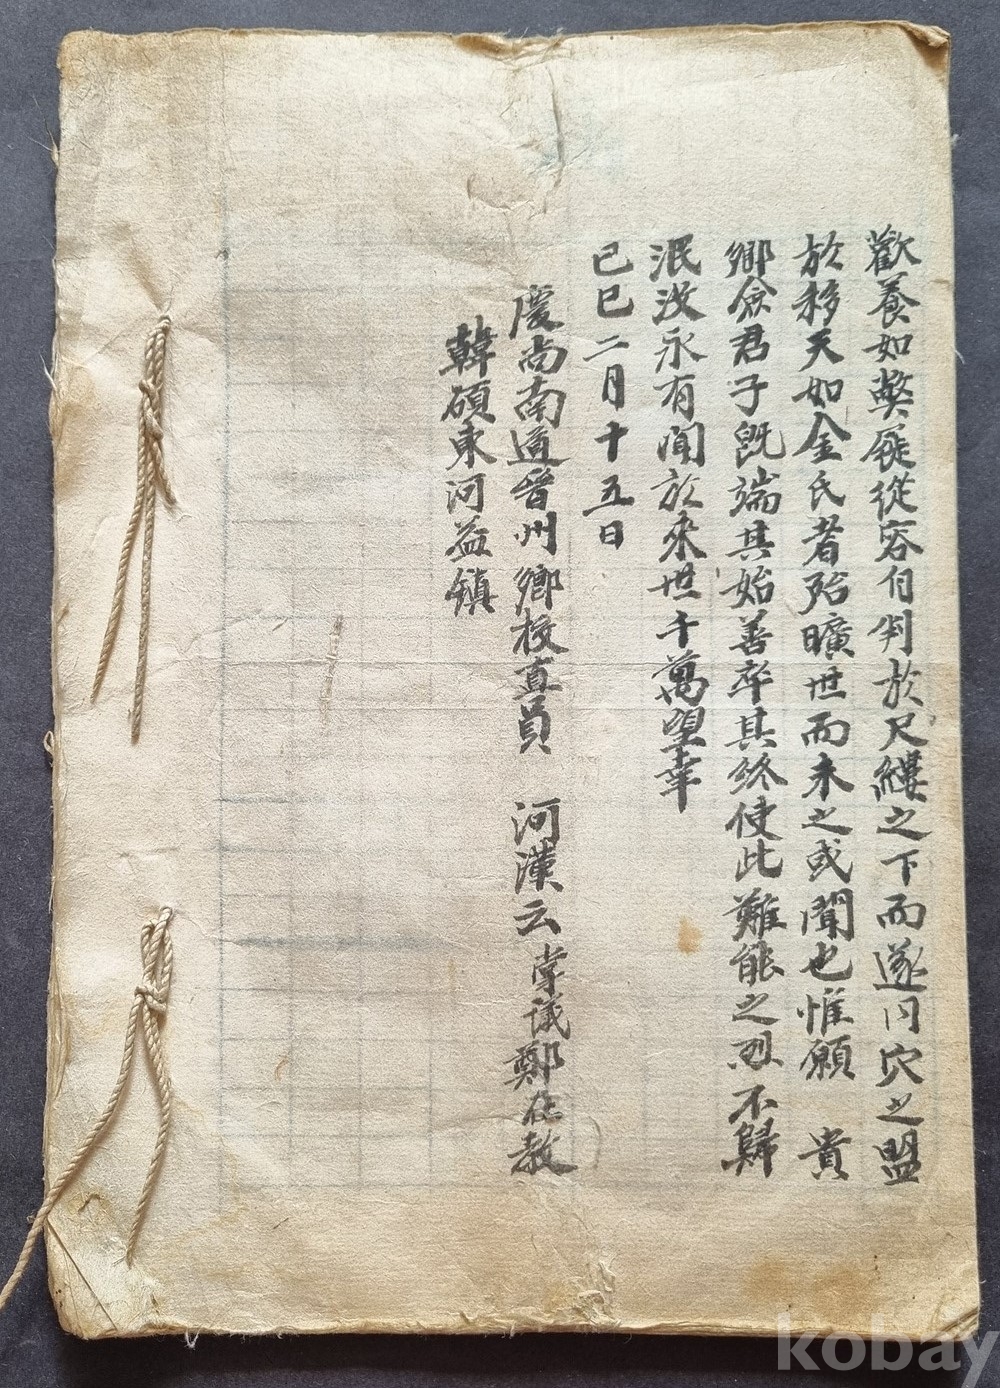 歡養如弊屣從容自判於尺縷之下而遂同穴之盟
於移天如金氏者殆曠世而未之或聞也惟願 貴
鄉僉君子旣端其始善卒其終使此難能之烈不歸
泯沒永有聞於來世千萬望幸
己巳二月十五日
慶尚南道晉州鄉校直員 河漢云 掌議鄭在教
韓碩東河益鎮
kobay